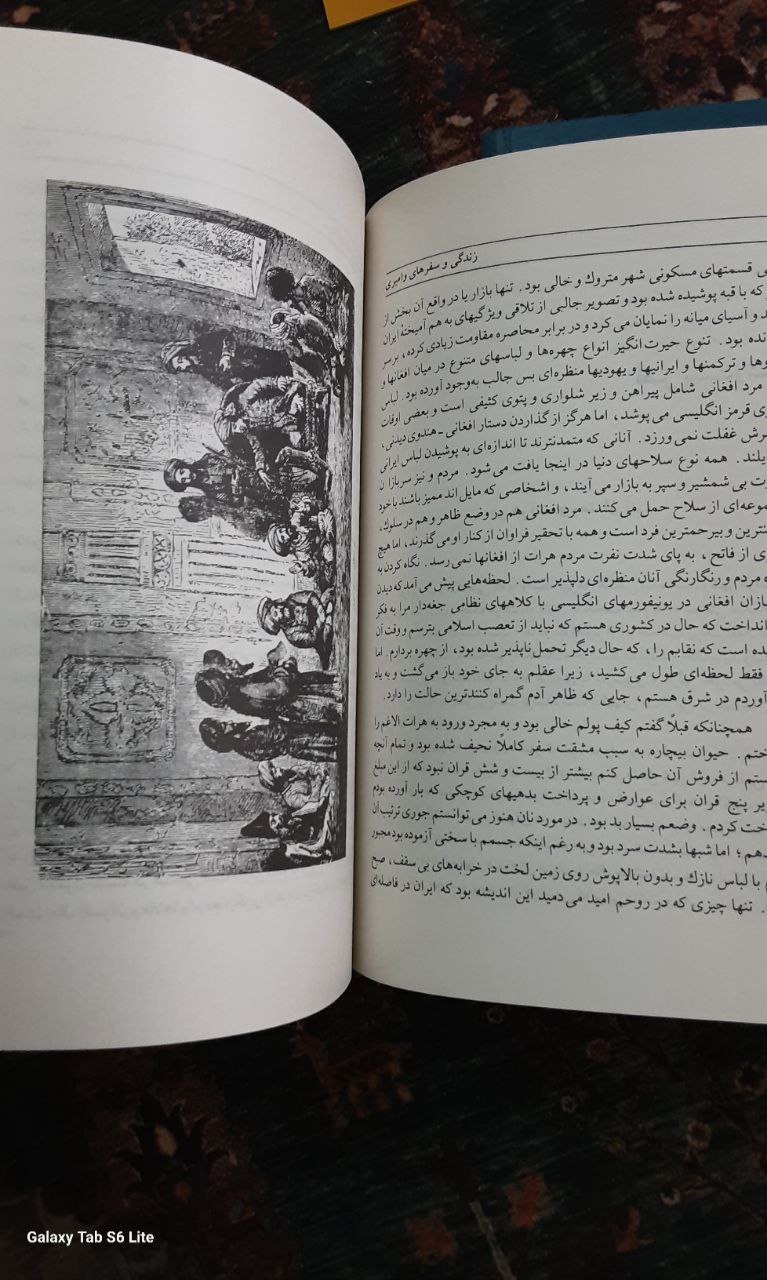 زندگی و سفرهای وامبری
قسمتهای مسکونی شهر متروك و خالی بود. تنها بازار یا در واقع آن بخش از
که با قبه پوشیده شده بود و تصویر جالبی از تلاقی ویژگیهای به هم آمیختهٔ ایران
و آسیای میانه را نمایان می‌کرد و در برابر محاصره مقاومت زیادی کرده، برسر
بود. تنوع حیرت‌انگیز انواع چهره‌ها و لباسهای متنوع در میان افغانها و
و ترکمنها و ایرانیها و یهودیها منظره‌ای بس جالب به‌وجود آورده بود. لباس
مرد افغانی شامل پیراهن و زیر شلواری و پتوی کثیفی است و بعضی اوقات
قرمز انگلیسی می‌پوشد، اما هرگز از گذاردن دستار افغانی ـ هندوی دیدنی،
غفلت نمی‌ورزد. آنانی که متمدنترند تا اندازه‌ای به پوشیدن لباس ایرانی
همه نوع سلاحهای دنیا در اینجا یافت می‌شود. مردم و نیز سربازان
بی شمشیر و سپر به بازار می‌آیند، و اشخاصی که مایل‌اند ممیز باشند با خود
از سلاح حمل می‌کنند. مرد افغانی هم در وضع ظاهر و هم در سلوك،
و بیرحمترین فرد است و همه با تحقیر فراوان از کنار او می‌گذرند، اما هیچ
از فاتح، به پای شدت نفرت مردم هرات از افغانها نمی‌رسد. نگاه کردن به
مردم و رنگارنگی آنان منظره‌ای دلپذیر است. لحظه‌هایی پیش می‌آمد که دیدن
افغانی در یونیفورمهای انگلیسی با کلاههای نظامی جغه‌دار مرا به فکر
انداخت که حال در کشوری هستم که نباید از تعصب اسلامی بترسم و وقت آن
است که نقابم را، که حال دیگر تحمل‌ناپذیر شده بود، از چهره بردارم. اما
فقط لحظه‌ای طول می‌کشید، زیرا عقلم به جای خود باز می‌گشت و به یاد
آوردم در شرق هستم، جایی که ظاهر آدم گمراه کنندترین حالت را دارد.
همچنانکه قبلاً گفتم کیف پولم خالی بود و به مجرد ورود به هرات الاغم را
حیوان بیچاره به سبب مشقت سفر کاملاً نحیف شده بود و تمام آنچه
از فروش آن حاصل کنم بیشتر از بیست و شش قران نبود که از این مبلغ
پنج قران برای عوارض و پرداخت بدهیهای کوچکی که بار آورده بودم
کردم. وضعم بسیار بد بود. در مورد نان هنوز می‌توانستم جوری ترتیب آن
اما شبها بشدت سرد بود و به رغم اینکه جسمم با سختی آزموده بود مجبور
با لباس نازك و بدون بالاپوش روی زمین لخت در خرابه‌های بی سقف، صبح
تنها چیزی که در روحم امید می‌دمید این اندیشه بود که ایران در فاصله‌ای
Galaxy Tab S6 Lite